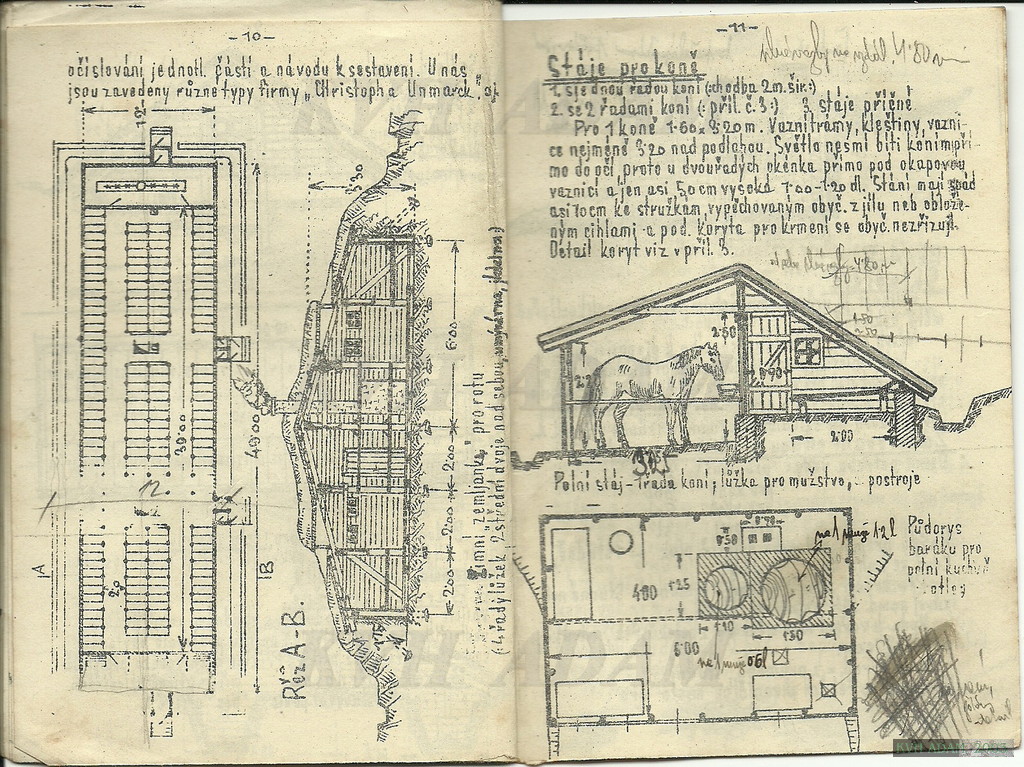 -10-
očíslování jednotl. částí a návodu k sestavení. U nás
jsou zavedeny různé typy firmy „Christoph a Unmarck“ aj.
12
A
B
20
39·00
40·00
Řěz A-B.
3·90
6·00
2·00
2·00
2·00
Zimní „zemljanka“ pro rotu
(: 4 řady lůžek 2 střední dvoje nad sebou, umývárna, jídelna :)
-11-
4·80 m
Stáje pro koně
1. s jednou řadou koní (: chodba 2 m. šir.:)
2. se 2 řadami koní (: příl. č. 3 :) 3. stáje příčné
Pro 1 koně 1·60 x 3·20 m. Vazní trámy, kleštiny, vazni-
ce nejméně 3·20 nad podlahou. Světlo nesmí bíti koním pří-
mo do očí, proto u dvouřadých okénka přímo pod okapovou
vaznicí a jen asi 50 cm vysoká 1·00-1·20 dl. Stání mají spád
asi 10 cm ke stružkám, vypěchovaným obyč. z jílu neb oblože-
ným cihlami a pod. Koryta pro krmení se obyč. nezřizují.
Detail koryt viz v příl. 3.
4·80 m
2·50
0·90
2·00
Polní stáj - 1 řada koní; lůžka pro mužstvo, postroje
Půdorys
baráku pro
polní kuchyň
0·70
0·50
na 1 muže 1·2 l
4·00
1·25
1·10
1·30
6·00
na 1 muže 0·6 l
KVH ADAM